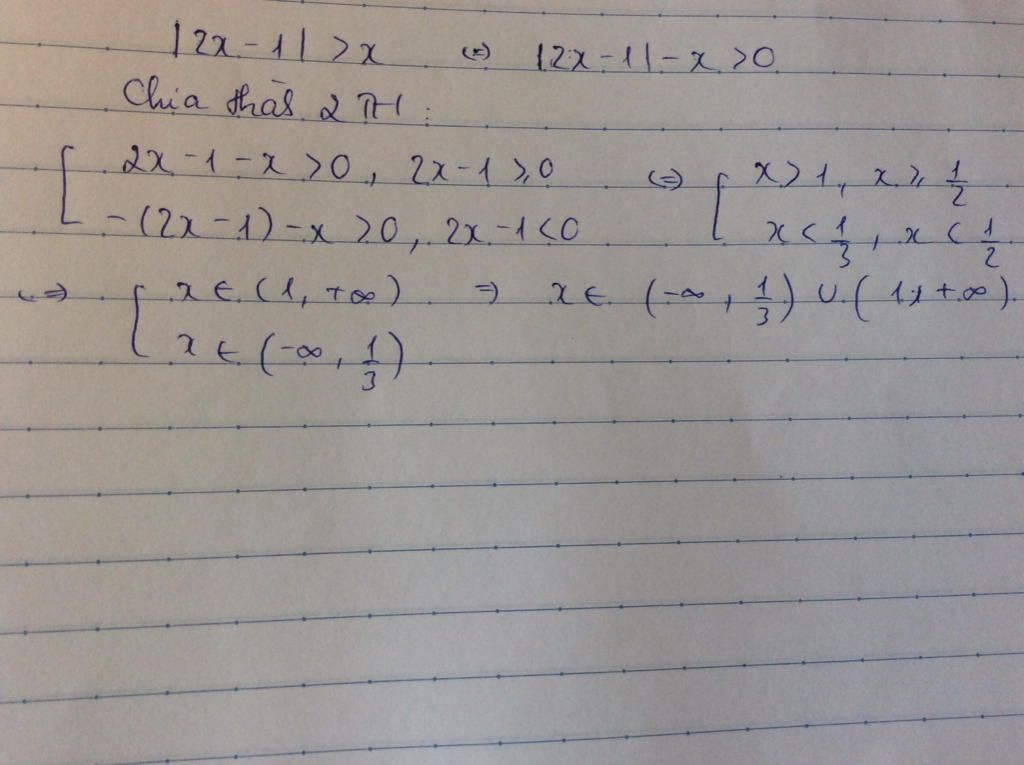 |2x - 1| > x (=) |2x - 1| - x > 0
Chia thàh 2 TH :
[ 2x - 1 - x > 0, 2x - 1 ≥ 0 (=) [ x > 1, x ≥ 1/2
-(2x - 1) - x > 0, 2x - 1 < 0 x < 1/3, x < 1/2
(=) [ x ∈ (1, +∞) => x ∈ (-∞, 1/3) ∪ (1, +∞).
x ∈ (-∞, 1/3)